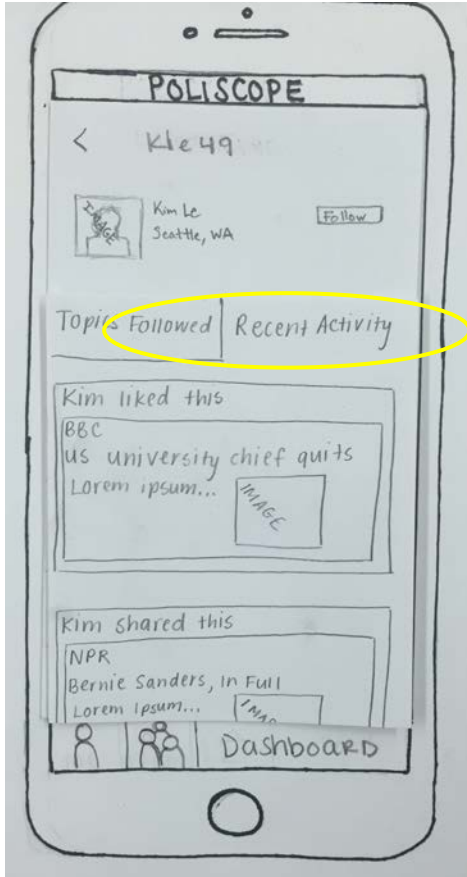 POLISCOPE
< Kle49
Kim Le
Seattle, WA
Follow
IMAGE
Topics Followed
Recent Activity
Kim liked this
BBC
us university chief quits
Lorem ipsum...
IMAGE
Kim shared this
NPR
Bernie Sanders, In Full
Lorem Ipsum...
IMAG
Dashboard